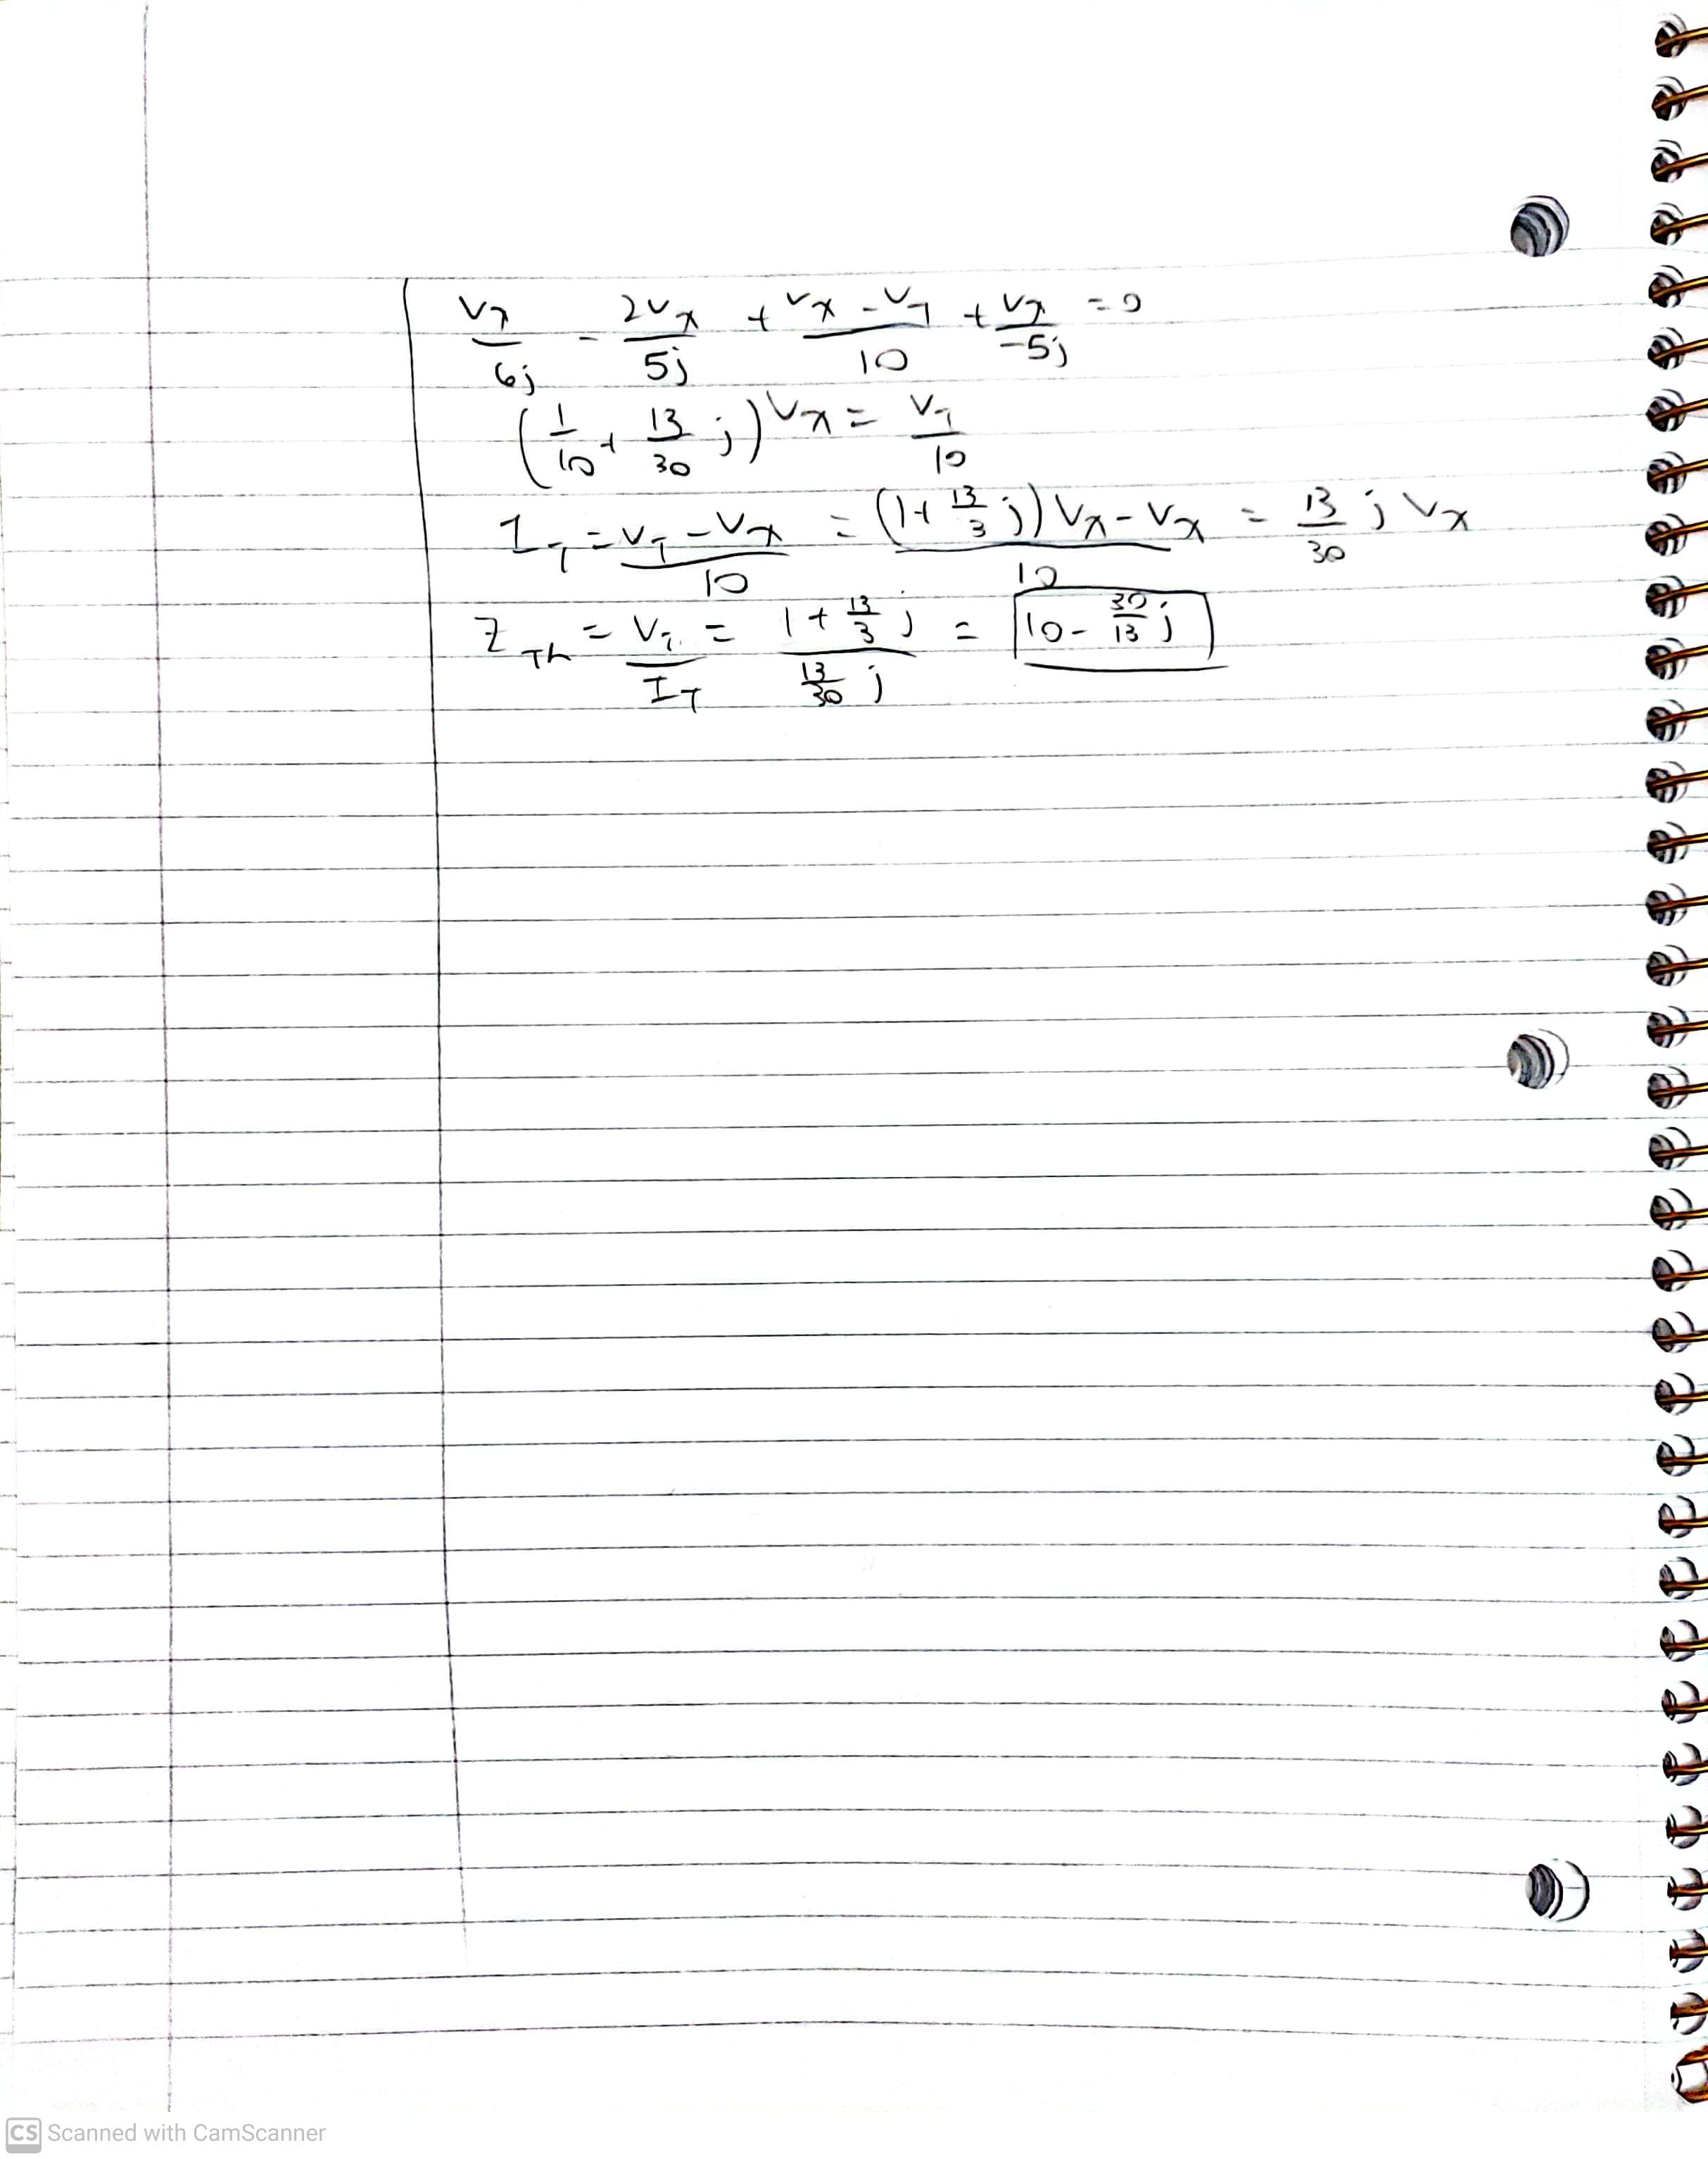 Vx/6j - 2Vx/5j + (Vx - VT)/10 + Vx/-5j = 0
(1/10 + 13/30 j) Vx = VT/10
IT = (VT - Vx)/10 = ((1 + 13/3 j) Vx - Vx)/10 = 13/30 j Vx
ZTh = VT/IT = (1 + 13/3 j)/(13/30 j) = 10 - 30/13 j
CS Scanned with CamScanner